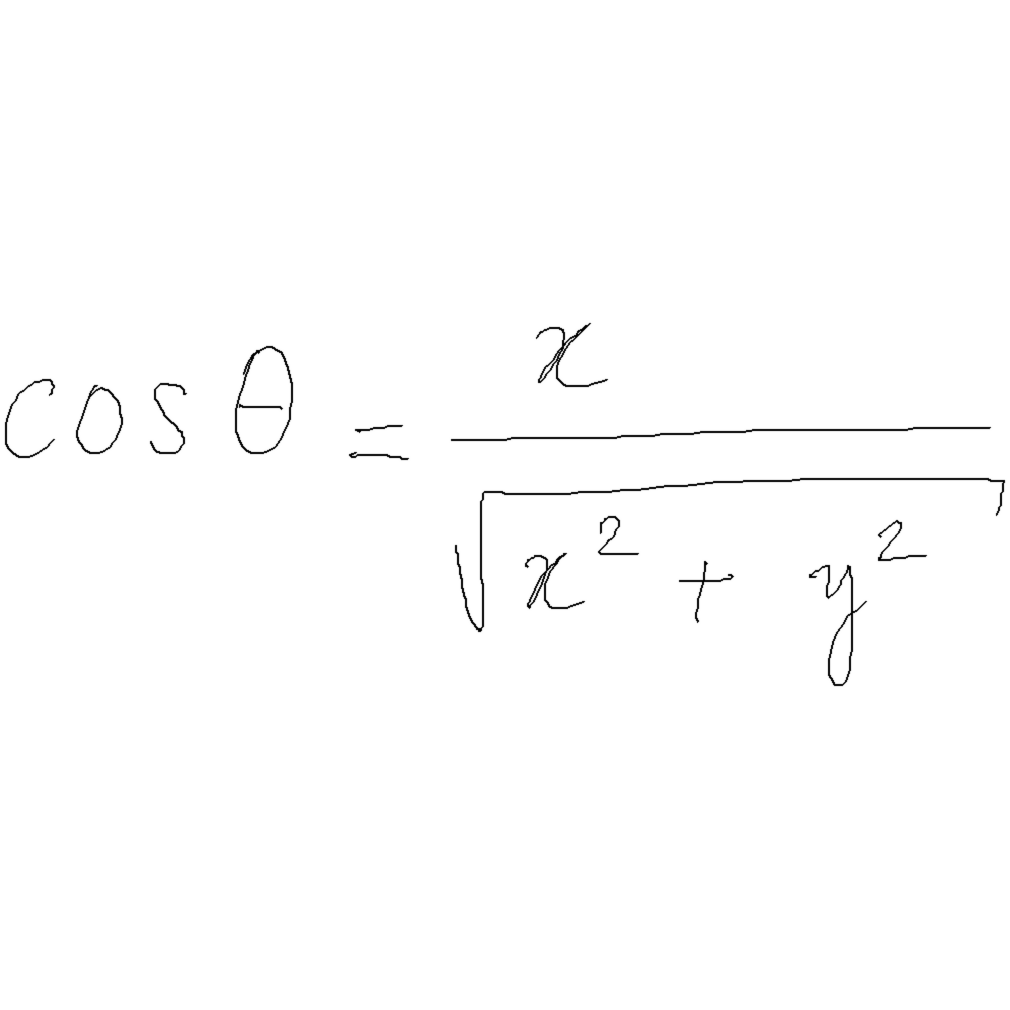 cos θ = \frac{x}{\sqrt{x^2 + y^2}}